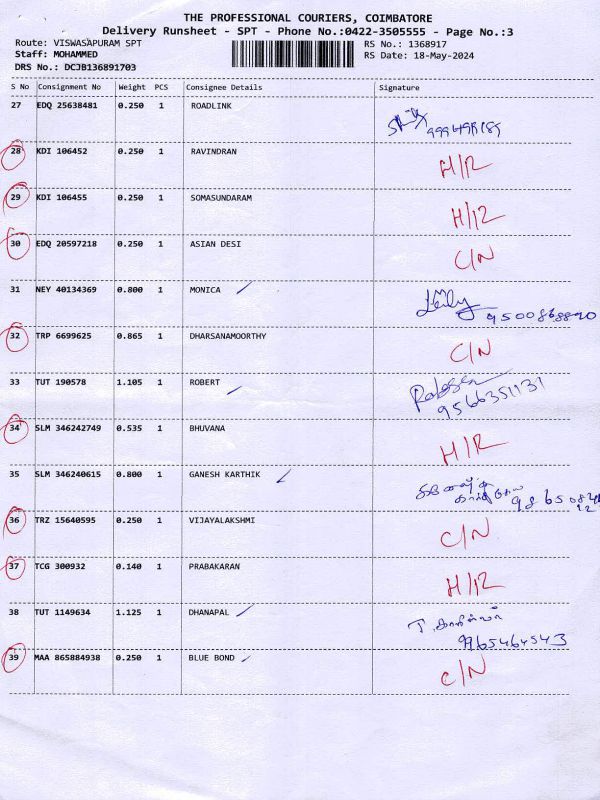 THE PROFESSIONAL COURIERS, COIMBATORE
Delivery Runsheet - SPT - Phone No.:0422-3505555 - Page No.:3
Route: VISWASAPURAM SPT
Staff: MOHAMMED
DRS No.: DCJB136891703
RS No.: 1368917
RS Date: 18-May-2024
S No Consignment No Weight PCS Consignee Details Signature
27 EDQ 25638481 0.250 1 ROADLINK
28 KDI 106452 0.250 1 RAVINDRAN H/R
29 KDI 106455 0.250 1 SOMASUNDARAM H/R
30 EDQ 20597218 0.250 1 ASIAN DESI C/N
31 NEY 40134369 0.800 1 MONICA
32 TRP 6699625 0.865 1 DHARSANAMOORTHY C/N
33 TUT 190578 1.105 1 ROBERT
9566351131
34 SLM 346242749 0.535 1 BHUVANA H/R
35 SLM 346240615 0.800 1 GANESH KARTHIK
36 TRZ 15640595 0.250 1 VIJAYALAKSHMI C/N
37 TCG 300932 0.140 1 PRABAKARAN H/R
38 TUT 1149634 1.125 1 DHANAPAL
9965464543
39 MAA 865884938 0.250 1 BLUE BOND C/N